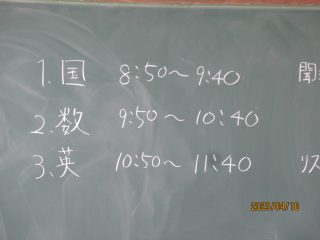 1.国 8:50〜9:40 聞
2.数 9:50〜10:40
3.英 10:50〜11:40 リス
2023/04/18